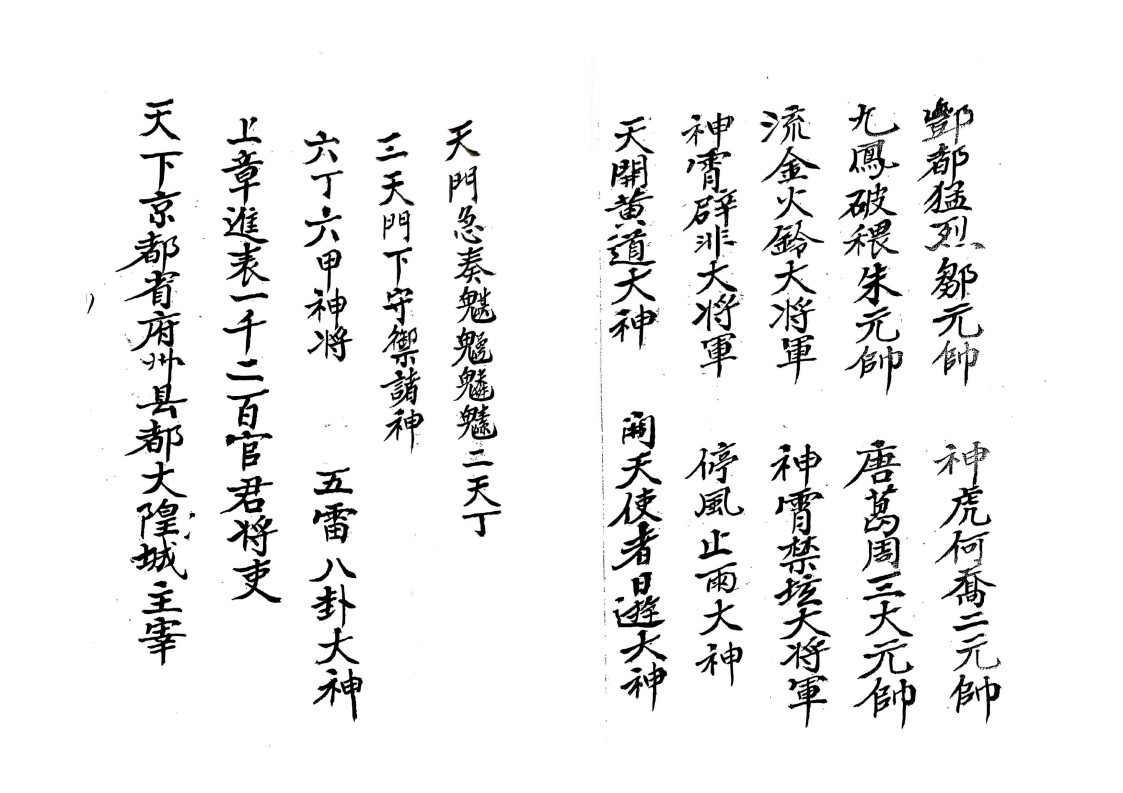 酆都猛烈鄒元帥　神虎何喬二元帥
九鳳破穢朱元帥　唐葛周三大元帥
流金火鈴大将軍　神霄禁坛大将軍
神霄辟非大将軍　停風止雨大神
天開黄道大神　開天使者日遊大神
天門急奏二天丁
三天門下守禦諸神
六丁六甲神将　五雷八卦大神
上章進表一千二百官君将吏
天下京都省府州县都大隍城主宰